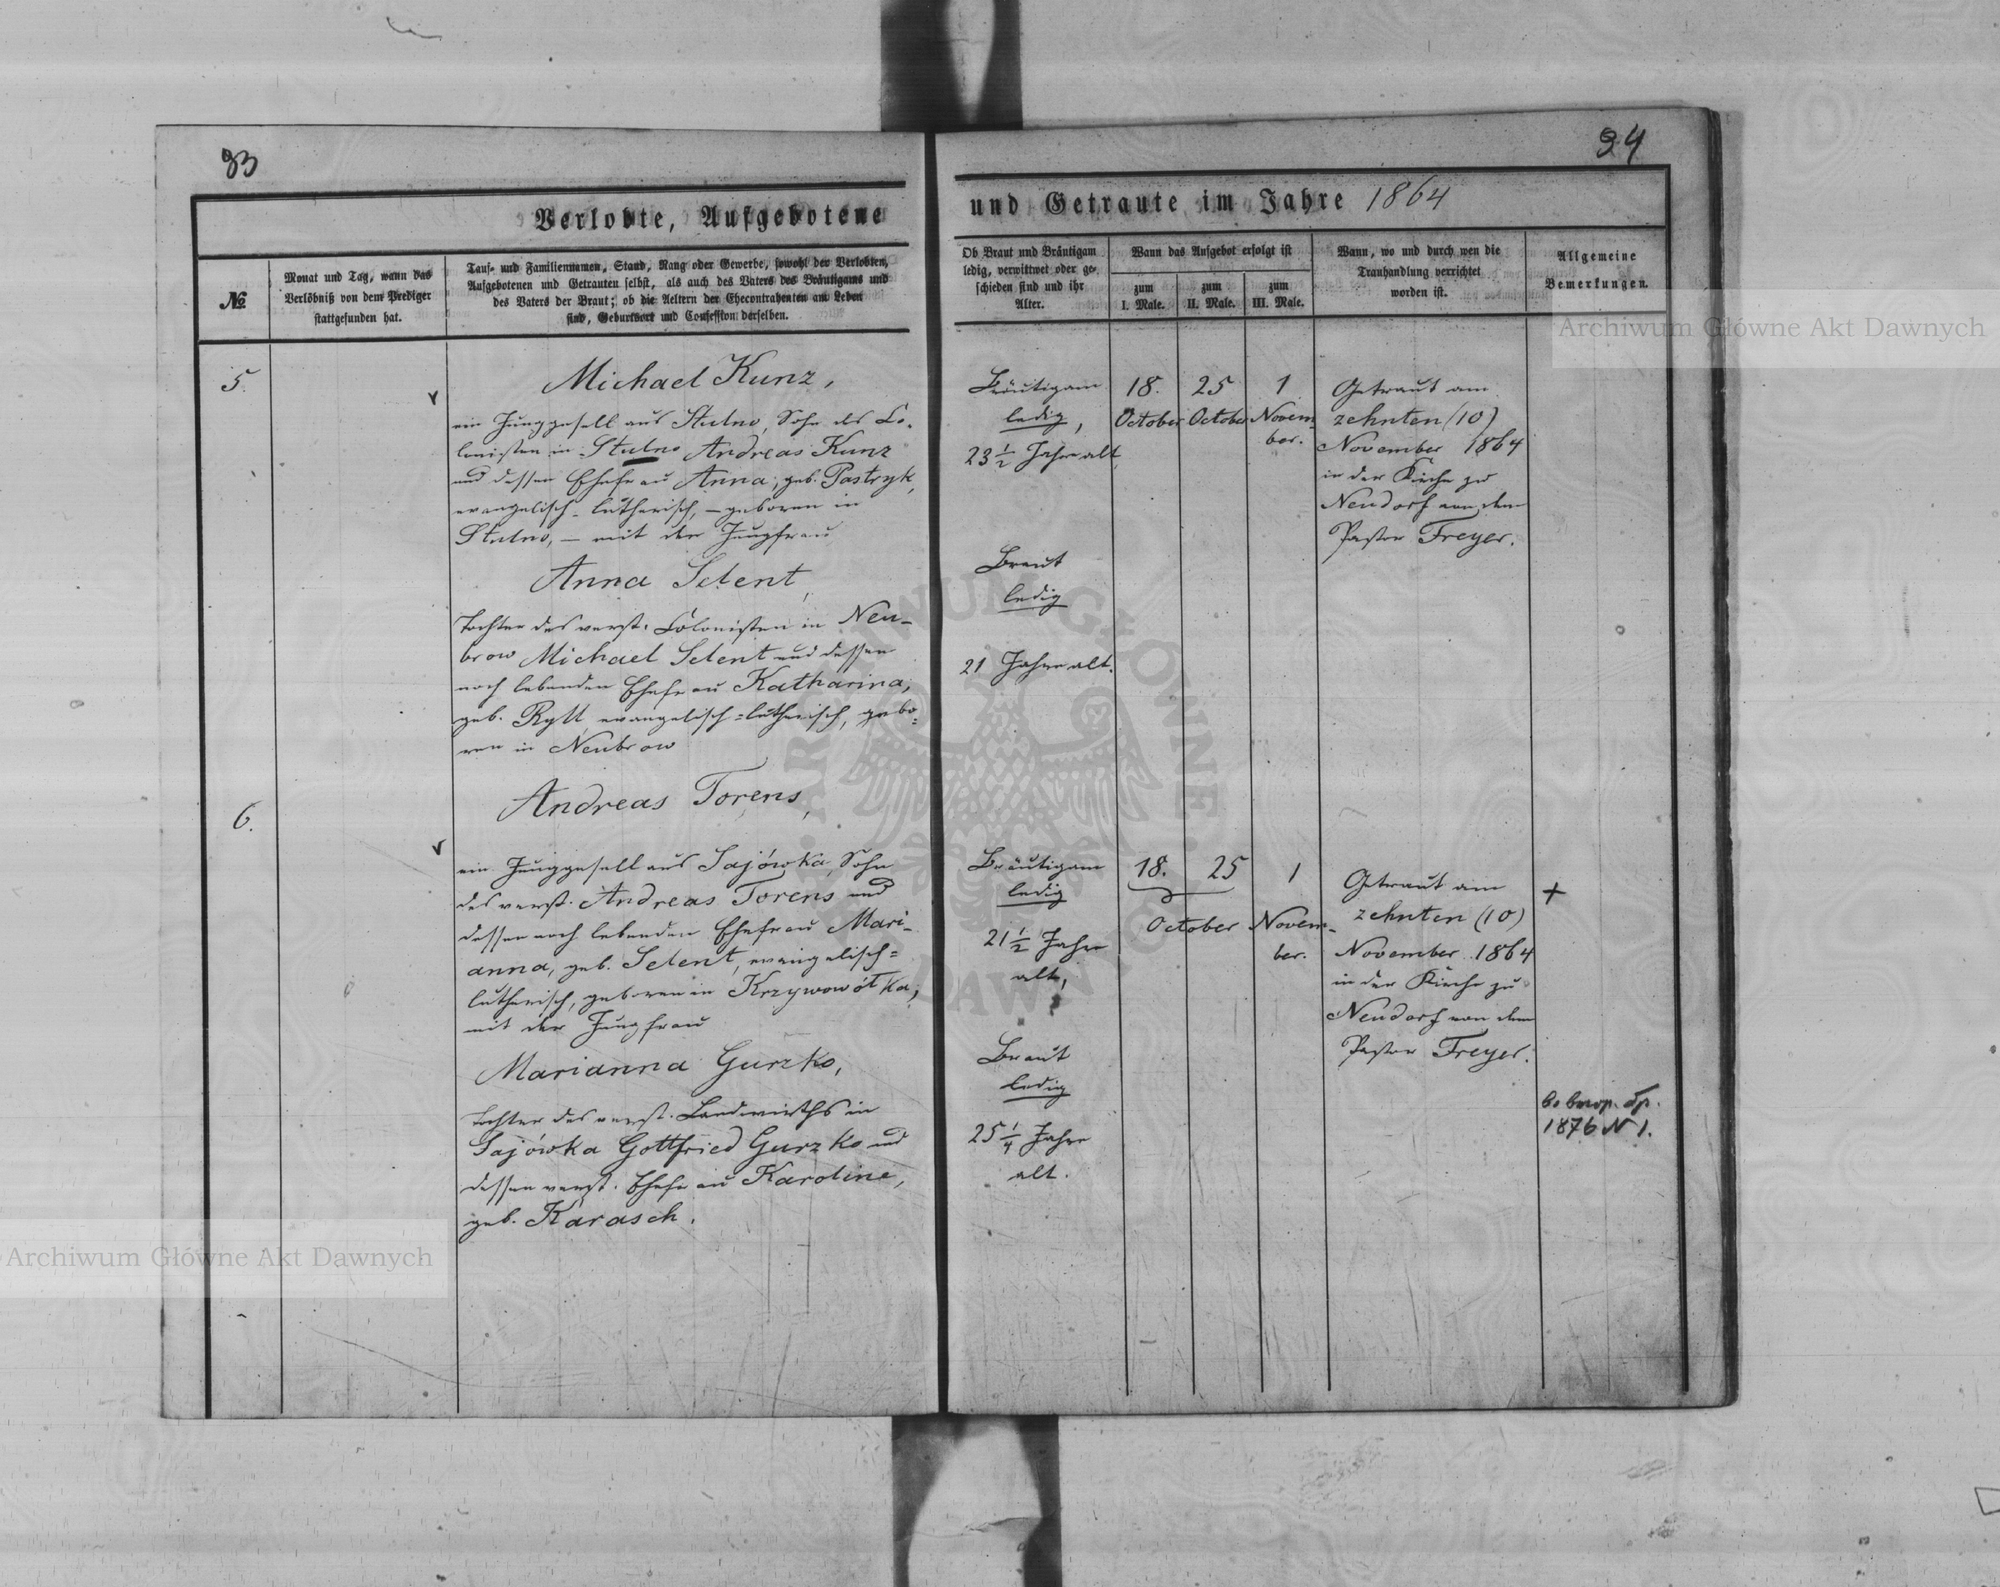 33
34
Verlobte, Aufgebotene
und Getraute im Jahre 1864
№
Monat und Tag, wann das
Verlöbniß von dem Prediger
stattgefunden hat.
Tauf- und Familiennamen, Stand, Rang oder Gewerbe, sowohl der Verlobten,
Aufgebotenen und Getrauten selbst, als auch des Vaters des Bräutigams und
des Vaters der Braut; ob die Aeltern der Ehecontrahenten am Leben
sind, Geburtsort und Confession derselben.
Ob Braut und Bräutigam
ledig, verwittwet oder ge-
schieden sind und ihr
Alter.
Wann das Aufgebot erfolgt ist
zum
I. Male.
zum
II. Male.
zum
III. Male.
Wann, wo und durch wen die
Trauhandlung verrichtet
worden ist.
Allgemeine
Bemerkungen.
5.
Michael Kunz,
ein Junggesell aus Stulno, Sohn des Co-
lonisten in Stulno Andreas Kunz
und dessen Ehefrau Anna, geb. Pastryk,
evangelisch-lutherisch, – geboren in
Stulno, – mit der Jungfrau
Anna Selent,
Tochter des verst. Colonisten in Neu-
brow Michael Selent und dessen
noch lebenden Ehefrau Katharina,
geb. Rytt evangelisch=lutherisch, gebo-
ren in Neubrow
Bräutigam
ledig,
23 1/2 Jahre alt,
Braut
ledig
21 Jahre alt.
18.
October
25
October
1
Novem-
ber.
Getraut am
zehnten (10)
November 1864
in der Kirche zu
Neudorf von dem
Pastor Freyer.
6.
Andreas Torens,
ein Junggesell aus Sajówka, Sohn
des verst. Andreas Torens und
dessen noch lebenden Ehefrau Mari-
anna, geb. Selent, evangelisch=
lutherisch, geboren in Krzywowólka,
mit der Jungfrau
Marianna Gurzko,
Tochter des verst. Landwirths in
Sajówka Gottfried Gurzko und
dessen verst. Ehefrau Karoline,
geb. Karasch.
Bräutigam
ledig
21 1/2 Jahre
alt,
Braut
ledig
25 1/4 Jahre
alt.
18. 25
October
1
Novem-
ber.
Getraut am
zehnten (10)
November 1864
in der Kirche zu
Neudorf von dem
Pastor Freyer.
+
1876 N 1.
Archiwum Główne Akt Dawnych
Archiwum Główne Akt Dawnych
ARCHIWUM GŁÓWNE AKT DAWNYCH